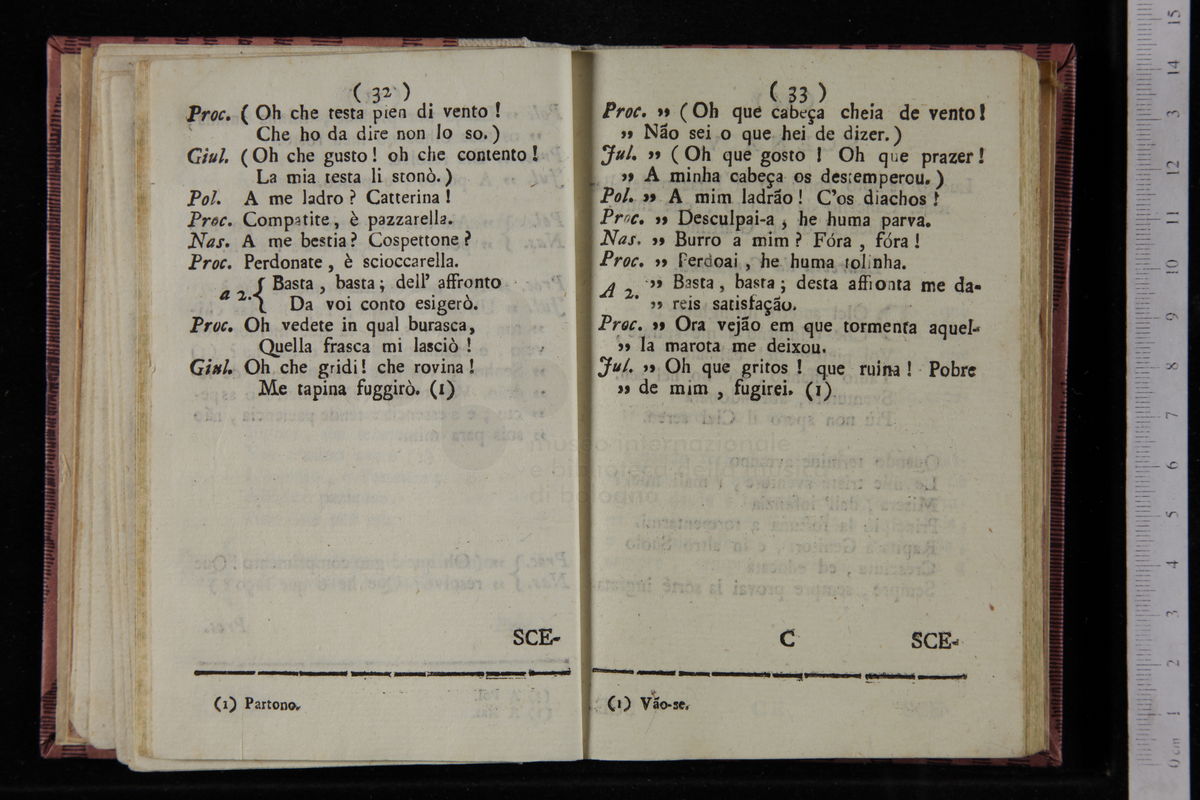 ( 32 )
Proc. ( Oh che testa pien di vento !
Che ho da dire non lo so. )
Giul. ( Oh che gusto ! oh che contento !
La mia testa li stonò. )
Pol. A me ladro ? Catterina !
Proc. Compatite , è pazzarella.
Nas. A me bestia ? Cospettone ?
Proc. Perdonate , è scioccarella.
a 2. { Basta , basta ; dell' affronto
Da voi conto esigerò.
Proc. Oh vedete in qual burasca,
Quella frasca mi lasciò !
Giul. Oh che gridi ! che rovina !
Me tapina fuggirò. (1)
SCE-
(1) Partono.
( 33 )
Proc. ,, ( Oh que cabeça cheia de vento !
,, Não sei o que hei de dizer. )
Jul. ,, ( Oh que gosto ! Oh que prazer !
,, A minha cabeça os destemperou. )
Pol. ,, A mim ladrão ! C'os diachos !
Proc. ,, Desculpai-a , he huma parva.
Nas. ,, Burro a mim ? Fóra , fóra !
Proc. ,, Perdoai , he huma tolinha.
A 2. ,, Basta , basta ; desta affronta me da-
,, reis satisfação.
Proc. ,, Ora vejão em que tormenta aquel-
,, la marota me deixou.
Jul. ,, Oh que gritos ! que ruina ! Pobre
,, de mim , fugirei. (1)
C SCE-
(1) Vão-se.
museo internazionale
e biblioteca della musica
di bologna
0 cm 1 2 3 4 5 6 7 8 9 10 11 12 13 14 15